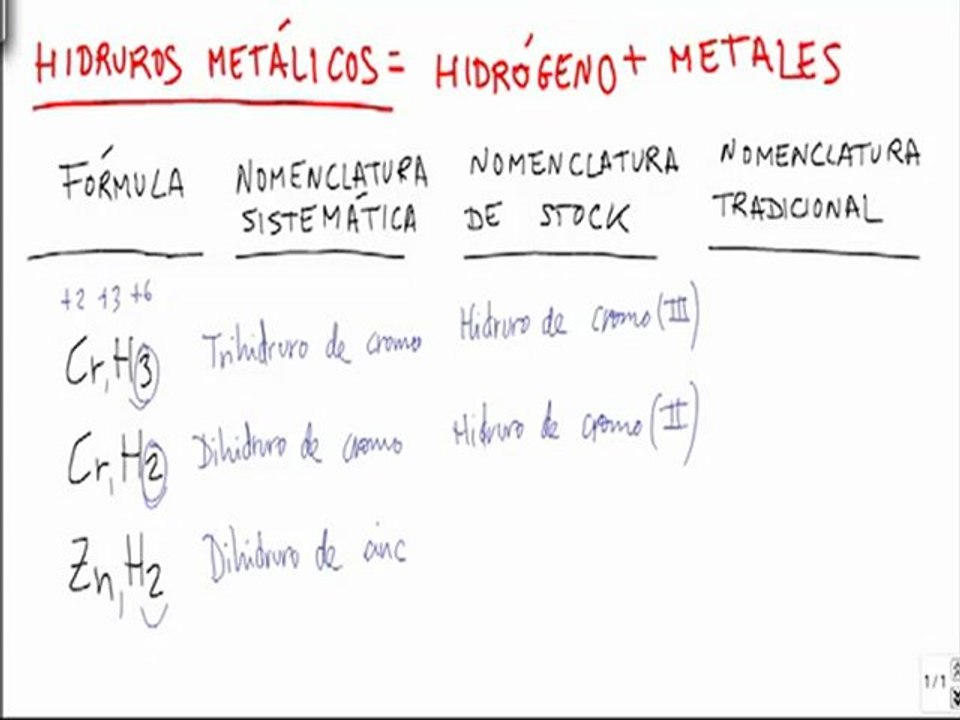 HIDRUROS METÁLICOS = HIDRÓGENO + METALES
FÓRMULA NOMENCLATURA SISTEMÁTICA NOMENCLATURA DE STOCK NOMENCLATURA TRADICIONAL
+2 +3 +6
Cr,H3 Trihidruro de cromo Hidruro de cromo (III)
Cr,H2 Dihidruro de cromo Hidruro de cromo (II)
Zn,H2 Dihidruro de cinc
1/1